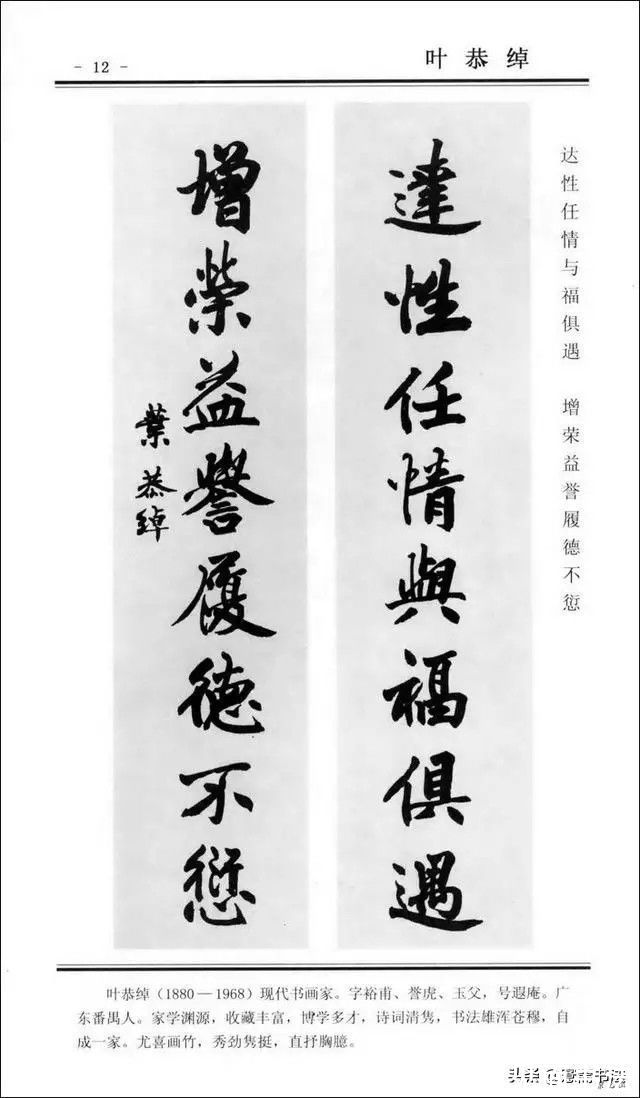 - 12 -
叶恭绰
达性任情与福俱遇 增荣益誉履德不愆
達性任情與福俱遇
增榮益譽履德不愆
葉恭綽
叶恭绰（1880—1968）现代书画家。字裕甫、誉虎、玉父，号遐庵。广
东番禺人。家学渊源，收藏丰富，博学多才，诗词清隽，书法雄浑苍穆，自
成一家。尤喜画竹，秀劲隽挺，直抒胸臆。
头条